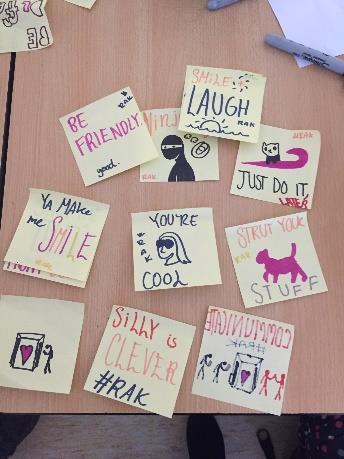 BE
SMILE +
LAUGH
RAK
RAK
BE
FRIENDLY.
good.
Ninja
RAK
#RAK
JUST DO IT.
LATER
YA MAKE
me SMILE
RAK
YOU'RE
#RAK
COOL
STRUT YOUR
RAK
STUFF
SILLY is
CLEVER
#RAK
COMMUNICATE
#RAK